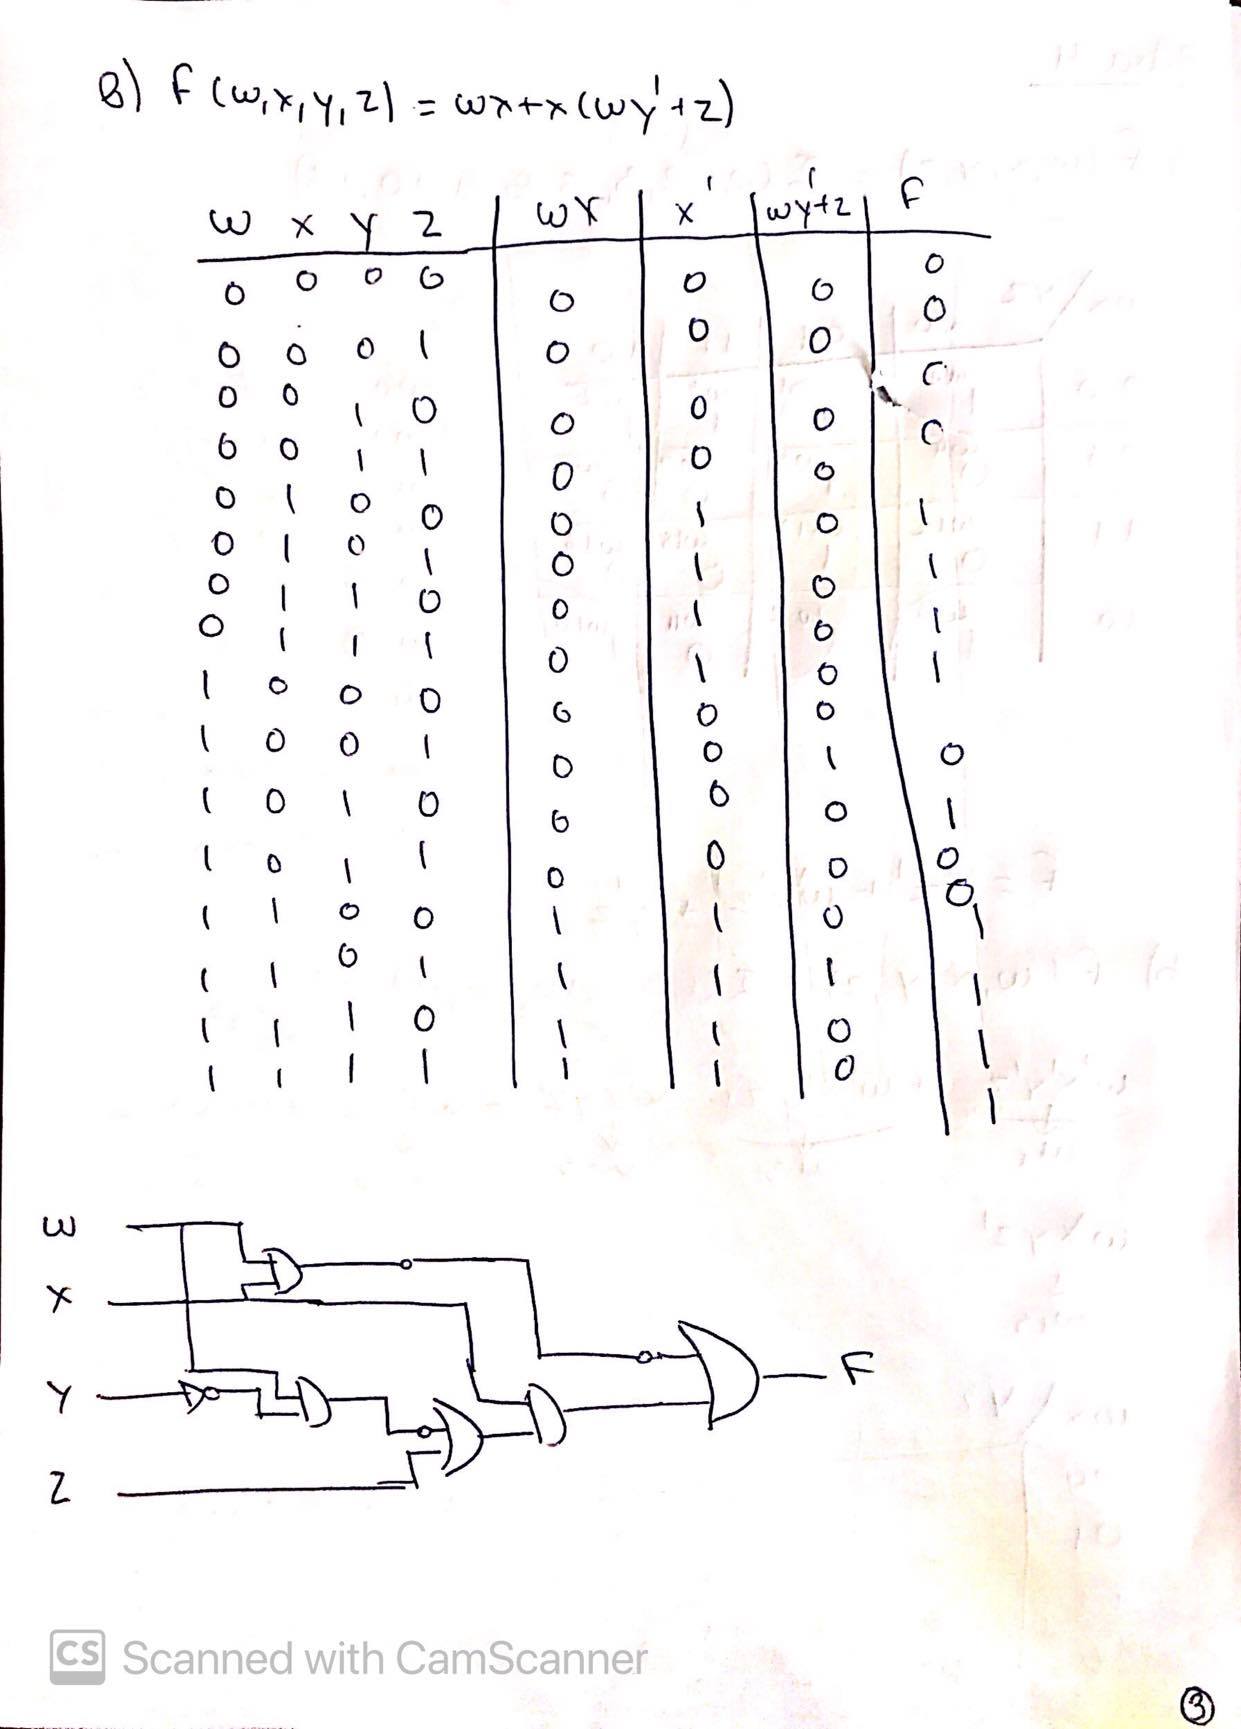 B) F (w,x,y,z) = wx+x(wy'+z)
w x y z | wx | x' | wy'+z | F
0 0 0 0 | 0 | 0 | 0 | 0
0 0 0 1 | 0 | 0 | 0 | 0
0 0 1 0 | 0 | 0 | 0 | 0
0 0 1 1 | 0 | 0 | 0 | 0
0 1 0 0 | 0 | 1 | 0 | 1
0 1 0 1 | 0 | 1 | 0 | 1
0 1 1 0 | 0 | 1 | 0 | 1
0 1 1 1 | 0 | 1 | 0 | 1
1 0 0 0 | 0 | 0 | 0 | 0
1 0 0 1 | 0 | 0 | 1 | 1
1 0 1 0 | 0 | 0 | 0 | 0
1 0 1 1 | 0 | 0 | 0 | 0
1 1 0 0 | 1 | 1 | 0 | 1
1 1 0 1 | 1 | 1 | 1 | 1
1 1 1 0 | 1 | 1 | 0 | 1
1 1 1 1 | 1 | 1 | 0 | 1
w
x
y F
z
CS Scanned with CamScanner
3